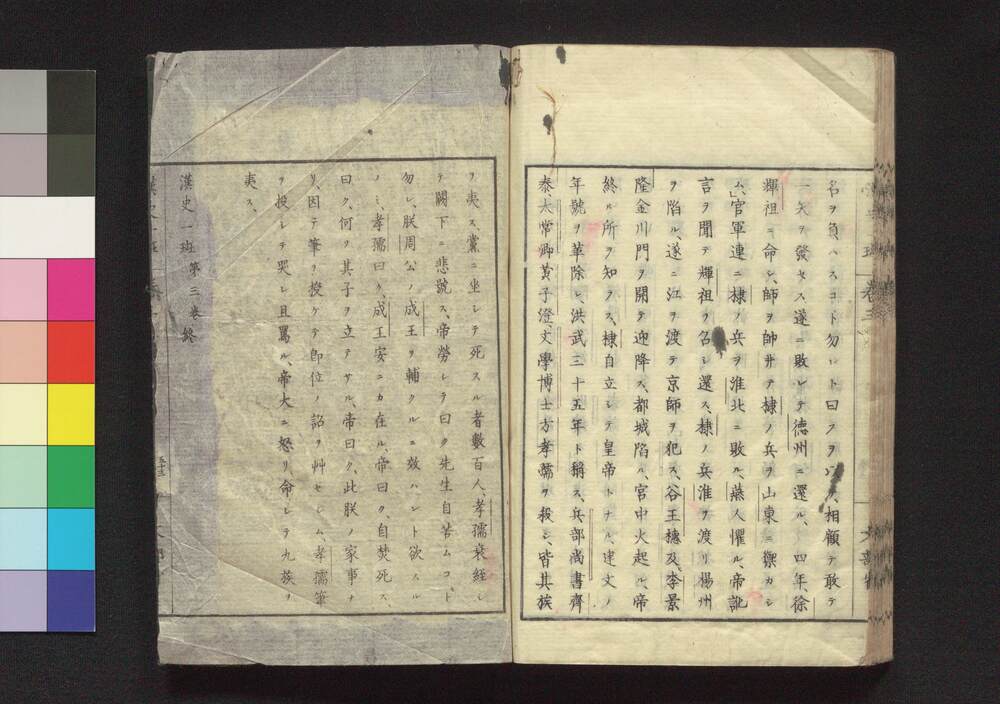 名ヲ負ハスコト勿レト曰フヲ以テ、相顧テ敢テ
一矢ヲ發セス遂ニ敗レテ德州ニ還ル、四年、徐
輝祖ニ命シ、師ヲ帥ヰテ棣ノ兵ヲ山東ニ禦カシ
ム、官軍連ニ棣ノ兵ヲ淮北ニ敗ル、燕人懼ル、帝訛
言ヲ聞テ輝祖ヲ召シ還ス、棣ノ兵淮ヲ渡リ楊州
ヲ陷ル、遂ニ江ヲ渡テ京師ヲ犯ス、谷王橞及、李景
隆金川門ヲ開テ迎降ス、都城陷ル、宮中火起ル、帝
終ル所ヲ知ラス、棣自立シテ皇帝トナル、建文ノ
年號ヲ革除シ、洪武三十五年ト稱ス、兵部尚書齊
泰、太常卿黃子、澄文學博士方孝孺ヲ殺シ、皆其族
ヲ夷ス、黨ニ坐シテ死スル者數百人、孝孺衰絰シ
テ闕下ニ悲號ス、帝勞シテ曰ク先生自苦ムコト
勿レ、朕周公ノ成王ヲ輔クルニ效ハント欲スル
ノミ、孝孺曰ク、成王安ニカ在ル、帝曰ク、自焚死ス、
曰ク、何ソ其子ヲ立テサル、帝曰ク、此朕ノ家事ナ
リ、因テ筆ヲ授ケテ即位ノ詔ヲ艸セシム、孝孺筆
ヲ投シテ哭シ且罵ル、帝大ニ怒リ命シテ九族ヲ
夷ス、
漢史一班第三卷終
五十三